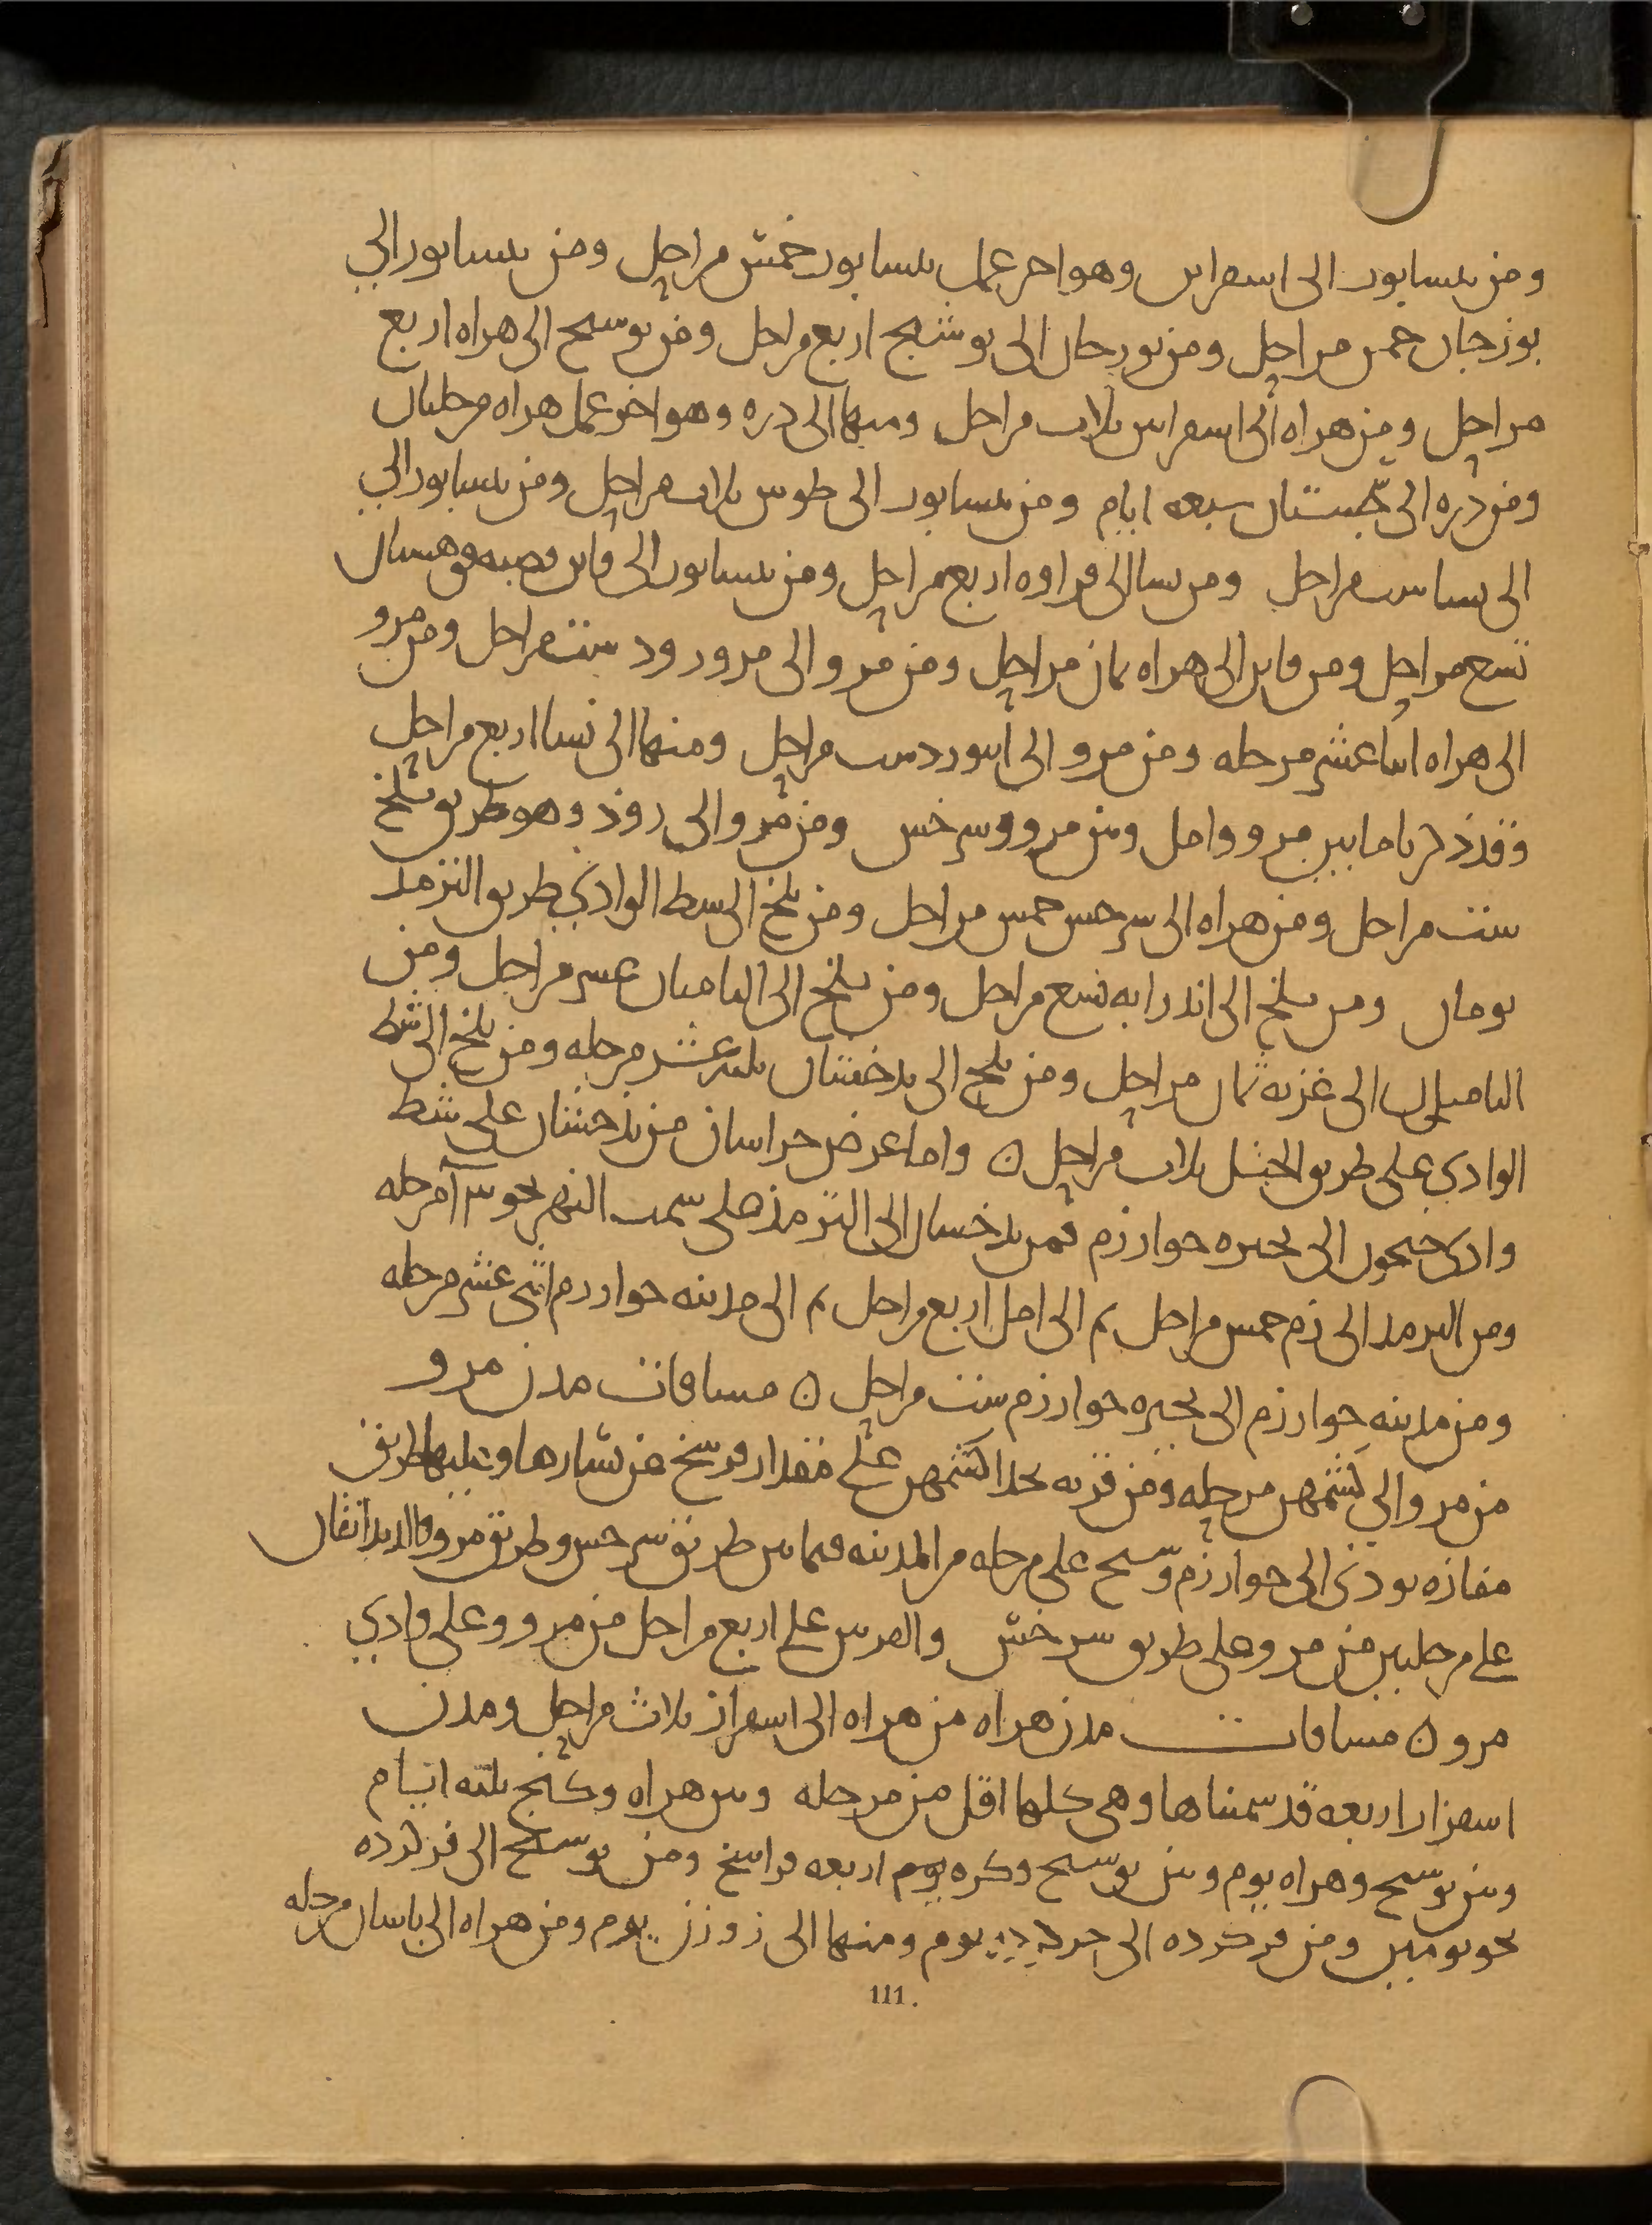 ومن نيسابور الى اسفراين وهو اخر عمل نيسابور خمس مراحل ومن نيسابور الى
بوزجان خمس مراحل ومن بوزجان الى بوشنج اربع مراحل ومن بوشنج الى هراه اربع
مراحل ومن هراه الى اسفراين ثلاث مراحل ومنها الى دره وهو اخر عمل هراه مرحلتان
ومن دره الى سجستان سبعه ايام ومن نيسابور الى طوس ثلاث مراحل ومن نيسابور الى
الى نسا ست مراحل ومن نسا الى فراوه اربع مراحل ومن نيسابور الى قاين قصبه قوهستان
تسع مراحل ومن قاين الى هراه ثمان مراحل ومن مرو الى مرورود ست مراحل ومن مرو
الى هراه اثنا عشر مرحله ومن مرو الى ابيورد ست مراحل ومنها الى نسا اربع مراحل
وقد ذكرنا ما بين مرو وامل وبين مرو وسرخس ومن مرو الى روذ وهو طريق بلخ
ست مراحل ومن هراه الى سرخس خمس مراحل ومن بلخ الى شط الوادي بطريق الترمذ
يومان ومن بلخ الى اندرابه تسع مراحل ومن بلخ الى الباميان عشر مراحل ومن
الباميان الى غزنه ثمان مراحل ومن بلخ الى بدخشان ثلثه عشر مرحله ومن بلخ الى شط
الوادي على طريق الختل ثلاث مراحل ن واما عرض خراسان من بذخشان على شط
وادى جيحون الى بحيره خوارزم فمن بدخشان الى الترمذ على سمت النهر نحو مرحله
ومن الترمذ الى زم خمس مراحل ثم الى امل اربع مراحل ثم الى مدينه خوارزم اثنى عشر مرحله
ومن مدينه خوارزم الى بحيره خوارزم ست مراحل ن مسافات مدن مرو
من مرو الى كشمهن مرحله ومن قريه بحذا كشمهن على مقدار فرسخ عن يسارها وعليها طريق
مفازه تودى الى خوارزم وسنج على مرحله من المدينه فيما بين طريق سرخس وطريق مرو والدندانقان
على مرحلتين من مرو وعلى طريق سرخس والقرينين على اربع مراحل من مرو وعلى وادي
مرو ن مسافات مدن هراه من هراه الى اسفزار ثلاث مراحل ومدن
اسفزار اربعه قد سميناها وهى كلها اقل من مرحله وبين هراه وكنج ثلثه ايام
وبين بوشنج وهراه يوم وبين بوشنج وكره يوم اربعه فراسخ ومن بوشنج الى فركرده
نحو يومين ومن فركرده الى يوم ومنها الى زوزن يوم ومن هراه الى باسان مرحله
111.